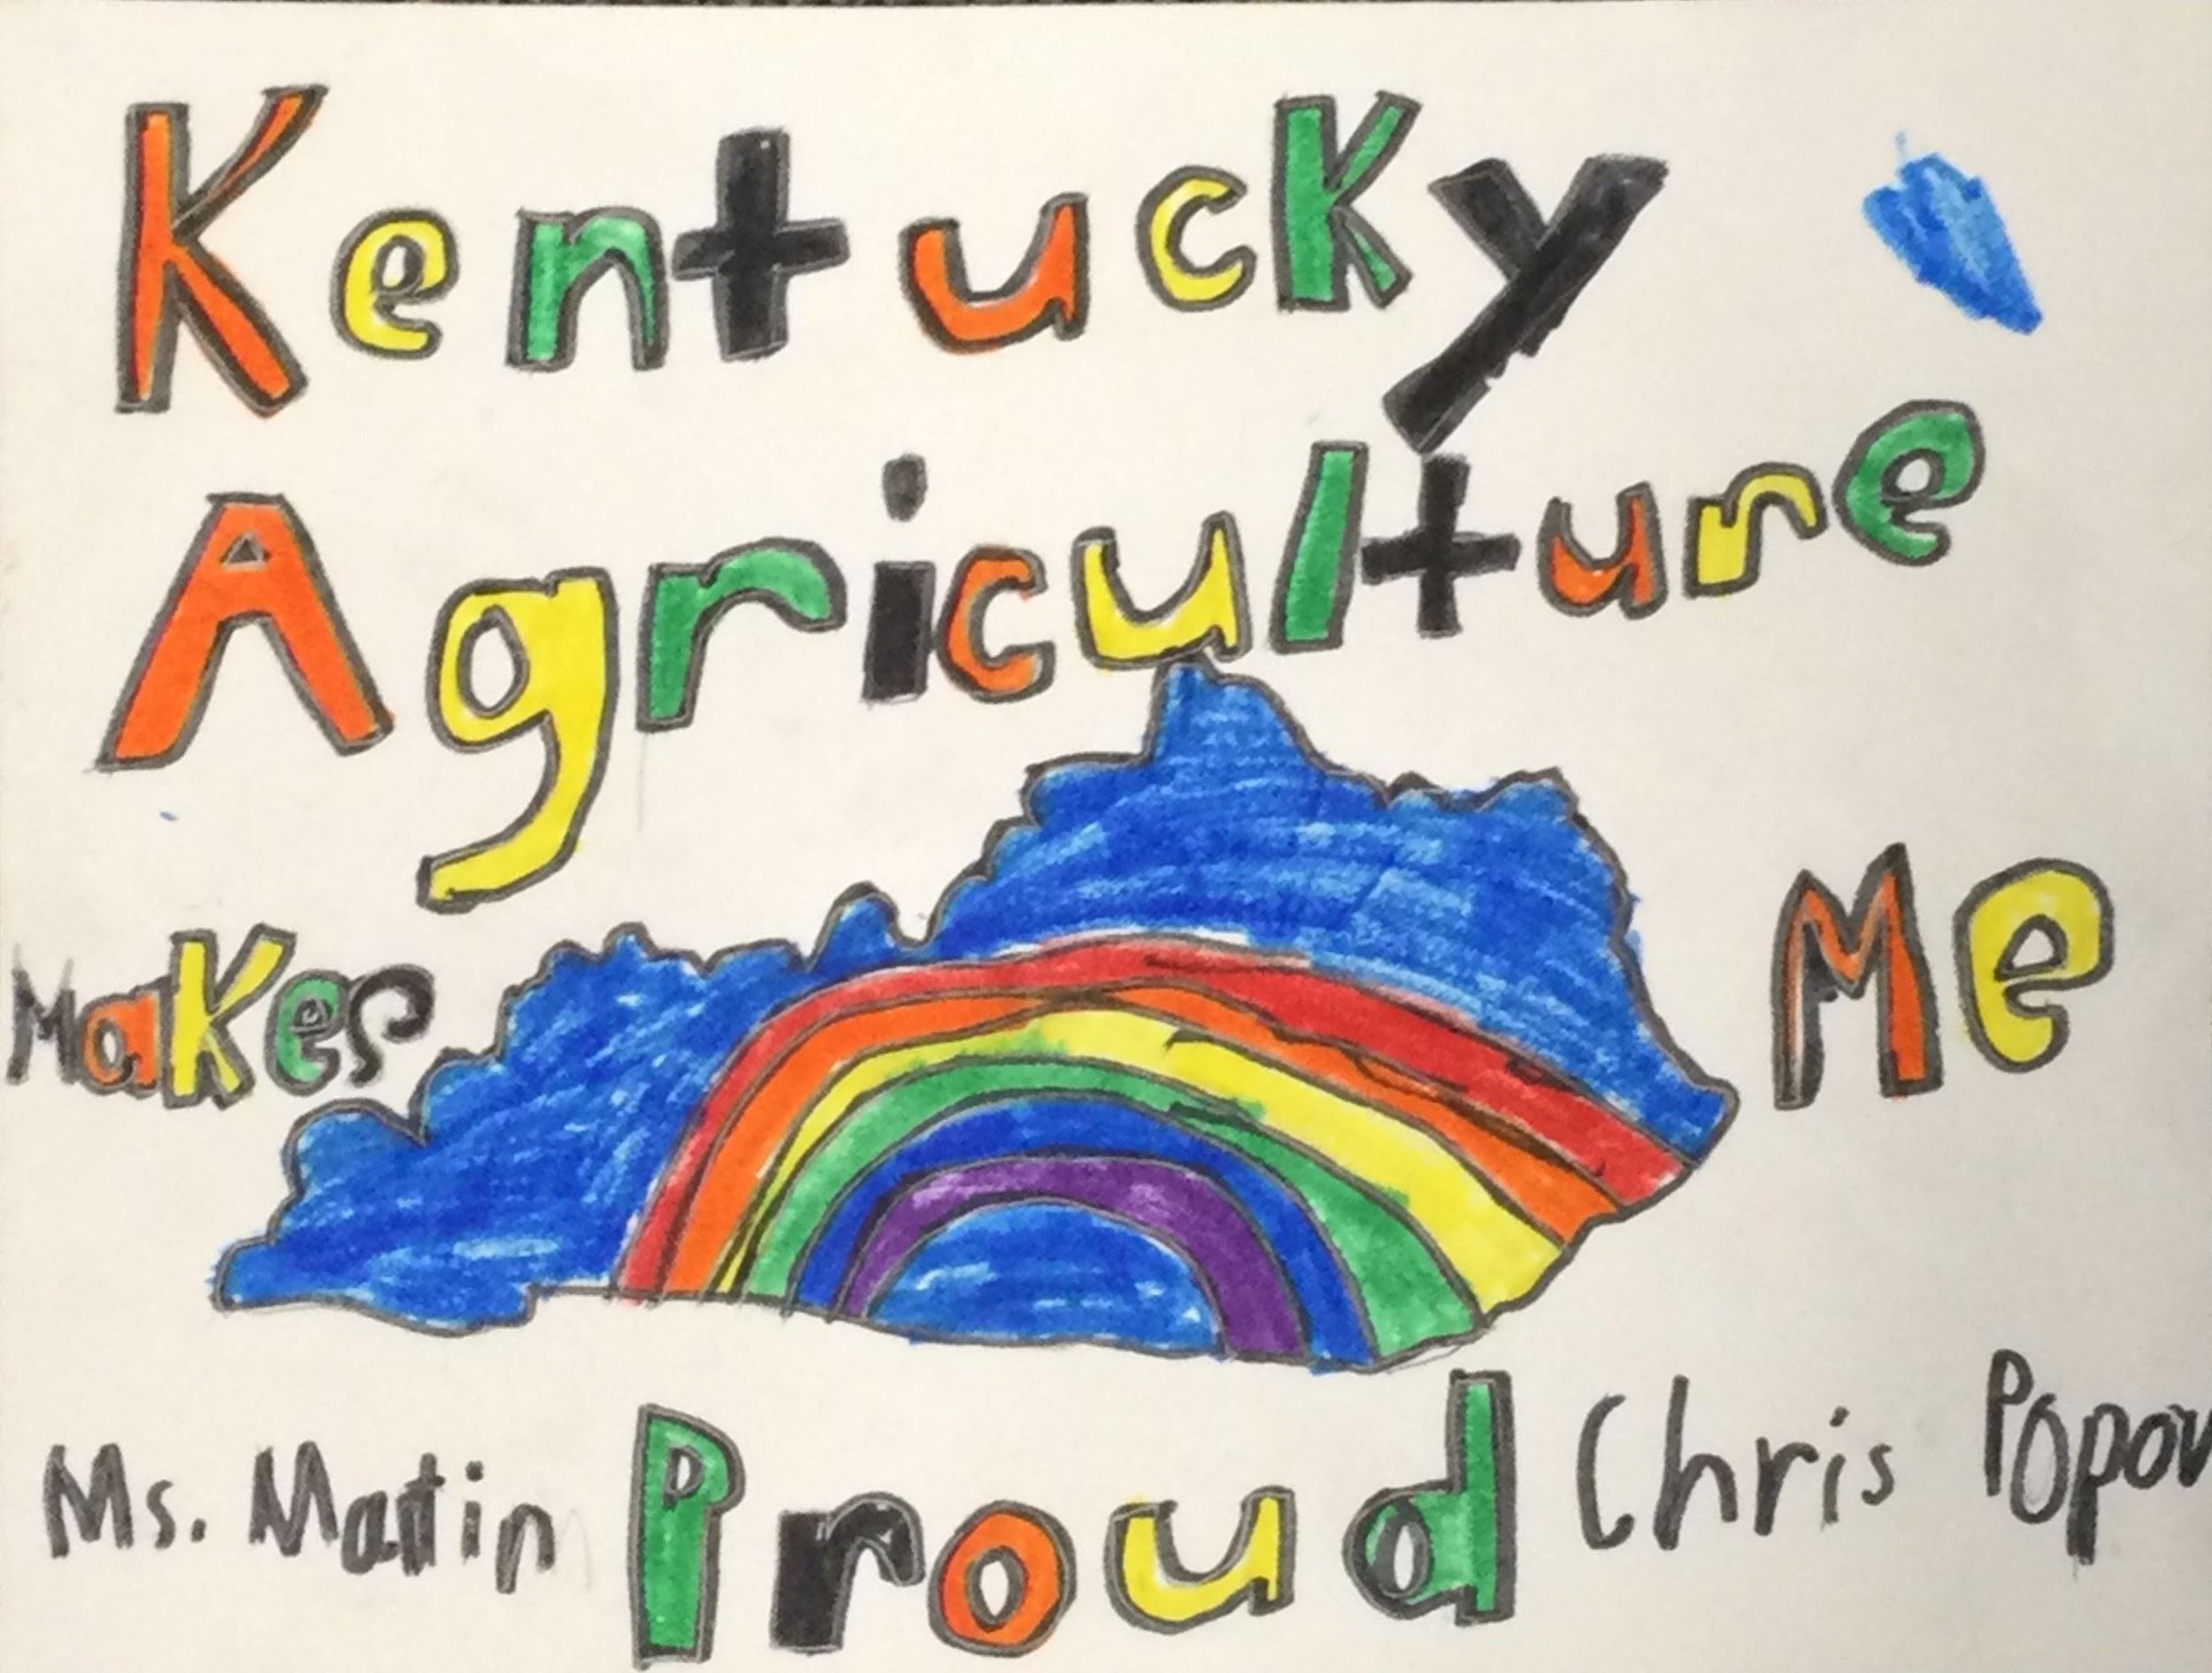 Kentucky
Agriculture
Makes Me
Ms. Martin Proud Chris Popov